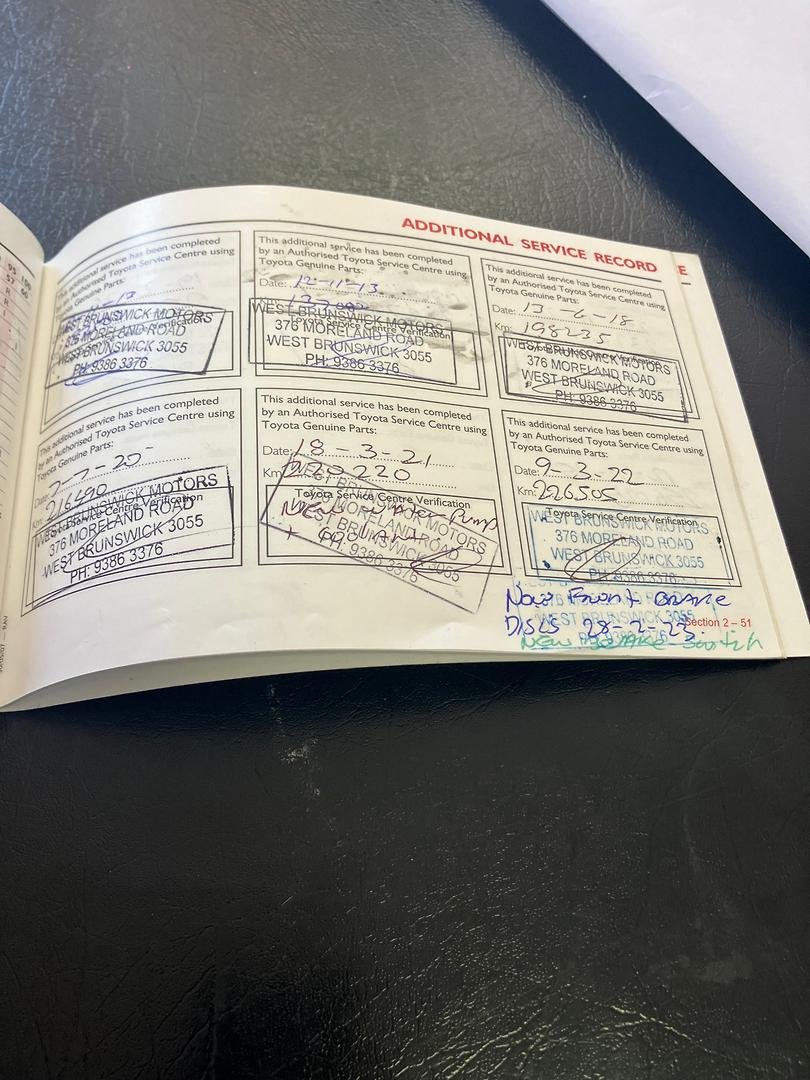 ADDITIONAL SERVICE RECORD
E
This additional service has been completed
by an Authorised Toyota Service Centre using
Toyota Genuine Parts:
WEST BRUNSWICK MOTORS
376 MORELAND ROAD
WEST BRUNSWICK 3055
PH: 9386 3376
This additional service has been completed
by an Authorised Toyota Service Centre using
Toyota Genuine Parts:
Date: 12-11-13
Toyota Service Centre Verification
WEST BRUNSWICK MOTORS
376 MORELAND ROAD
WEST BRUNSWICK 3055
PH: 9386 3376
This additional service has been completed
by an Authorised Toyota Service Centre using
Toyota Genuine Parts:
Date: 13-6-18
Km: 198235
WEST BRUNSWICK MOTORS
376 MORELAND ROAD
WEST BRUNSWICK 3055
PH: 9386 3376
This additional service has been completed
by an Authorised Toyota Service Centre using
Toyota Genuine Parts:
Date:
Km: 216490
Toyota Service Centre Verification
WEST BRUNSWICK MOTORS
376 MORELAND ROAD
WEST BRUNSWICK 3055
PH: 9386 3376
This additional service has been completed
by an Authorised Toyota Service Centre using
Toyota Genuine Parts:
Date: 18-3-21
Km: 220220
Toyota Service Centre Verification
WEST BRUNSWICK MOTORS
376 MORELAND ROAD
WEST BRUNSWICK 3055
PH: 9386 3376
New Water Pump
This additional service has been completed
by an Authorised Toyota Service Centre using
Toyota Genuine Parts:
Date: 9-3-22
Km: 226505
Toyota Service Centre Verification
WEST BRUNSWICK MOTORS
376 MORELAND ROAD
WEST BRUNSWICK 3055
PH: 9386 3376
New Front BRAKE
DISCS 28-2-23.
Section 2 – 51
NEW BRAKE Switch